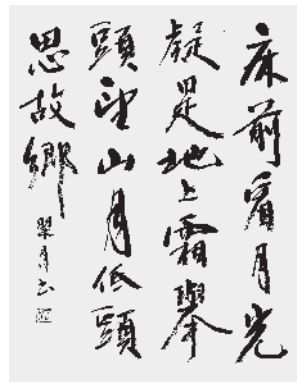 床前看月光
疑是地上霜舉
頭望山月低頭
思故鄉